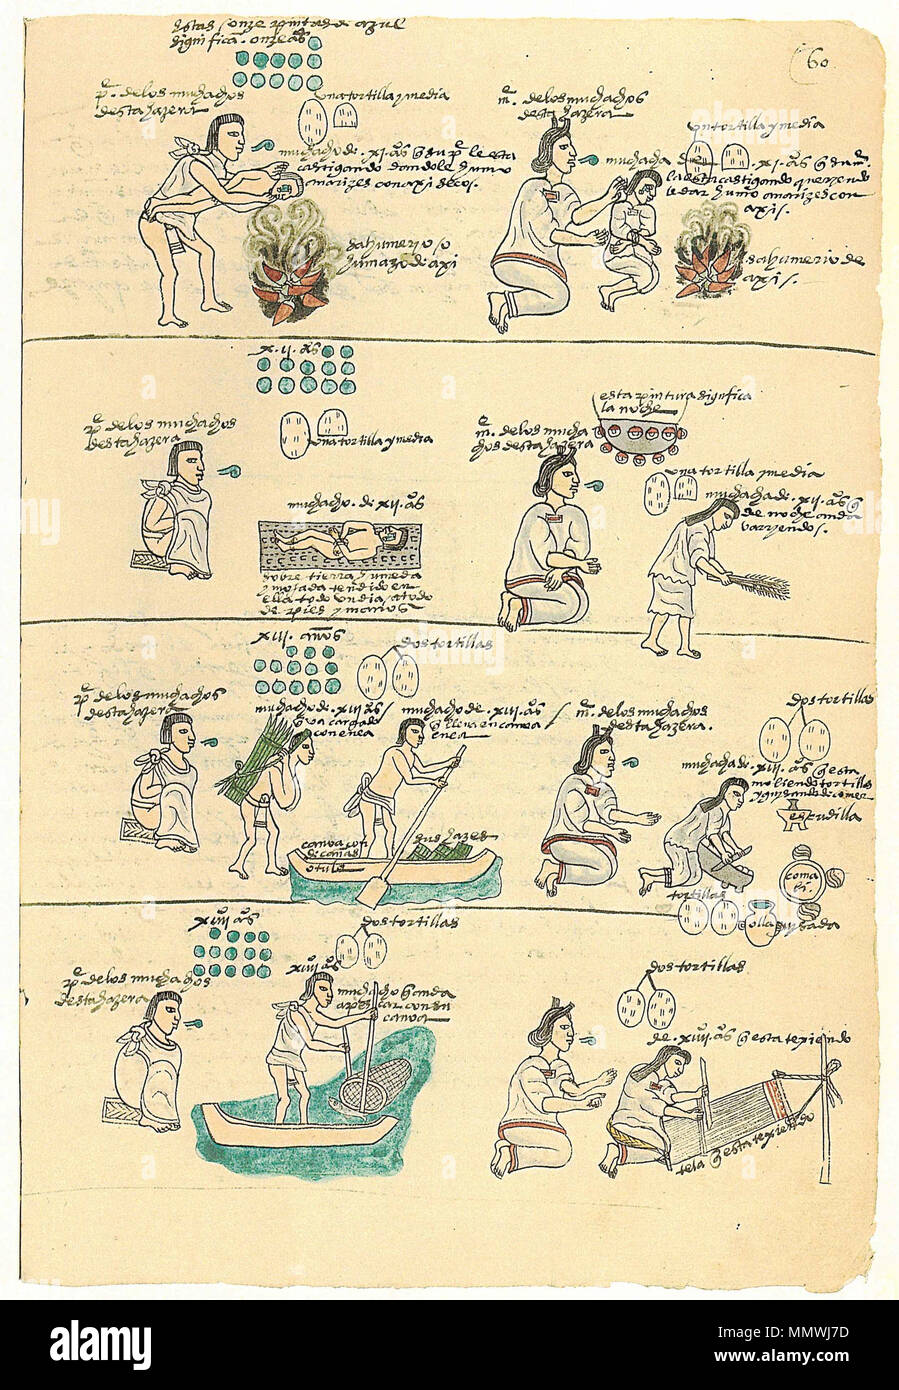 60
estas onze pintas de azul
significã. onze añs
p̃. de los muchachos
desta hazera
una tortilla y media
muchacho de. xi. añs q̃ su p̃ le esta
castigando dandole humo
a narizes con axi secos.
sahumerio o
humazo de axi
m̃. de los muchachos
desta hazera
un tortilla y media
muchacha de. xi. añs q̃ su m̃.
la esta castigando queriendo
le dar humo a narizes con
axis.
sahumerio de
axis.
x.ii. añs
p̃ de los muchachos
desta hazera
una tortilla y media
muchacho. de xii. añs
sobre tierra humeda
y mojada tendido en
ella todo un dia / atado
de pies y manos
esta pintura significa
la noche
m̃. de los mucha
chos desta hazera
una tortilla y media
muchacha de. xii. añs q̃
de noche anda
varriendo.
xiii años
dos tortillas
p̃ de los muchachos
desta hazera
muchacho de. xiii añs
q̃ va cargado
con enea
muchacho de. xiii. añs
q̃ lleva en canoa
enea
canoa con
de cañas
o tule
sus hazes
m̃. de los muchachos
desta hazera.
dos tortillas
muchacha de. xiii. añs q̃ esta
moliendo tortillas
y guisando de comer
escudilla
comali.
tortillas
olla guisada
xiiii añs
dos tortillas
p̃ de los muchachos
desta hazera
xiiii añs
muchacho q̃ anda
a pescar con su
canoa
dos tortillas
de. xiiii. añs q̃ esta texiendo
tela q̃ esta texiendo
alamy
alamy
a
Image ID: MMWJ7D
www.alamy.com